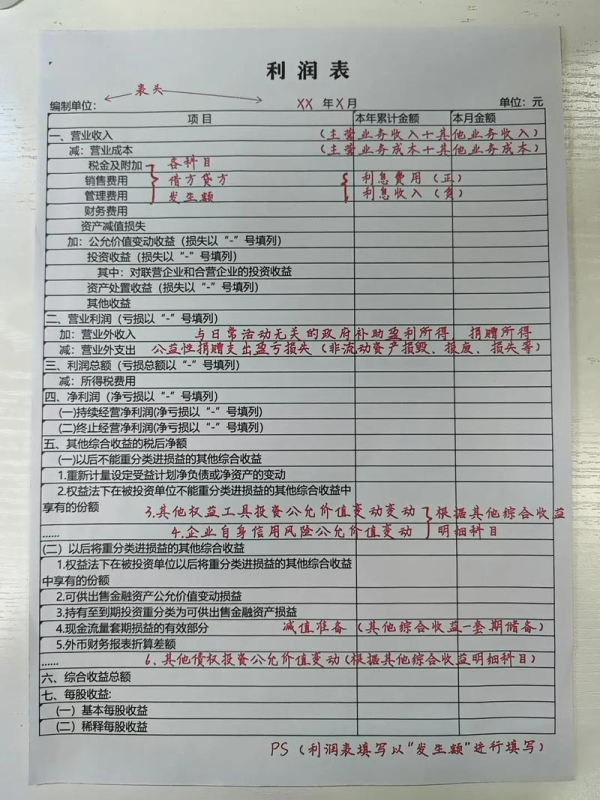 利润表
表头
编制单位： XX 年X月 单位：元
项目 本年累计金额 本月金额
一、营业收入 (主营业务收入+其他业务收入)
减：营业成本 (主营业务成本+其他业务成本)
税金及附加 各科目
销售费用 借方贷方 利息费用(正)
管理费用 发生额 利息收入(负)
财务费用
资产减值损失
加：公允价值变动收益（损失以“-”号填列）
投资收益（损失以“-”号填列）
其中：对联营企业和合营企业的投资收益
资产处置收益（损失以“-”号填列）
其他收益
二、营业利润（亏损以“-”号填列）
加：营业外收入 与日常活动无关的政府补助盈利所得、捐赠所得
减：营业外支出 公益性捐赠支出盈亏损失(非流动资产损毁、报废、损失等)
三、利润总额（亏损总额以“-”号填列）
减：所得税费用
四、净利润（净亏损以“-”号填列）
(一)持续经营净利润(净亏损以“-”号填列)
(二)终止经营净利润(净亏损以“-”号填列)
五、其他综合收益的税后净额
(一)以后不能重分类进损益的其他综合收益
1.重新计量设定受益计划净负债或净资产的变动
2.权益法下在被投资单位不能重分类进损益的其他综合收益中
享有的份额
3.其他权益工具投资公允价值变动变动 根据其他综合收益
...... 4.企业自身信用风险公允价值变动 明细科目
(二）以后将重分类进损益的其他综合收益
1.权益法下在被投资单位以后将重分类进损益的其他综合收益
中享有的份额
2.可供出售金融资产公允价值变动损益
3.持有至到期投资重分类为可供出售金融资产损益
4.现金流量套期损益的有效部分 减值准备(其他综合收益-套期储备)
5.外币财务报表折算差额
...... 6.其他债权投资公允价值变动(根据其他综合收益明细科目)
六、综合收益总额
七、每股收益:
(一）基本每股收益
(二）稀释每股收益
PS(利润表填写以“发生额”进行填写)